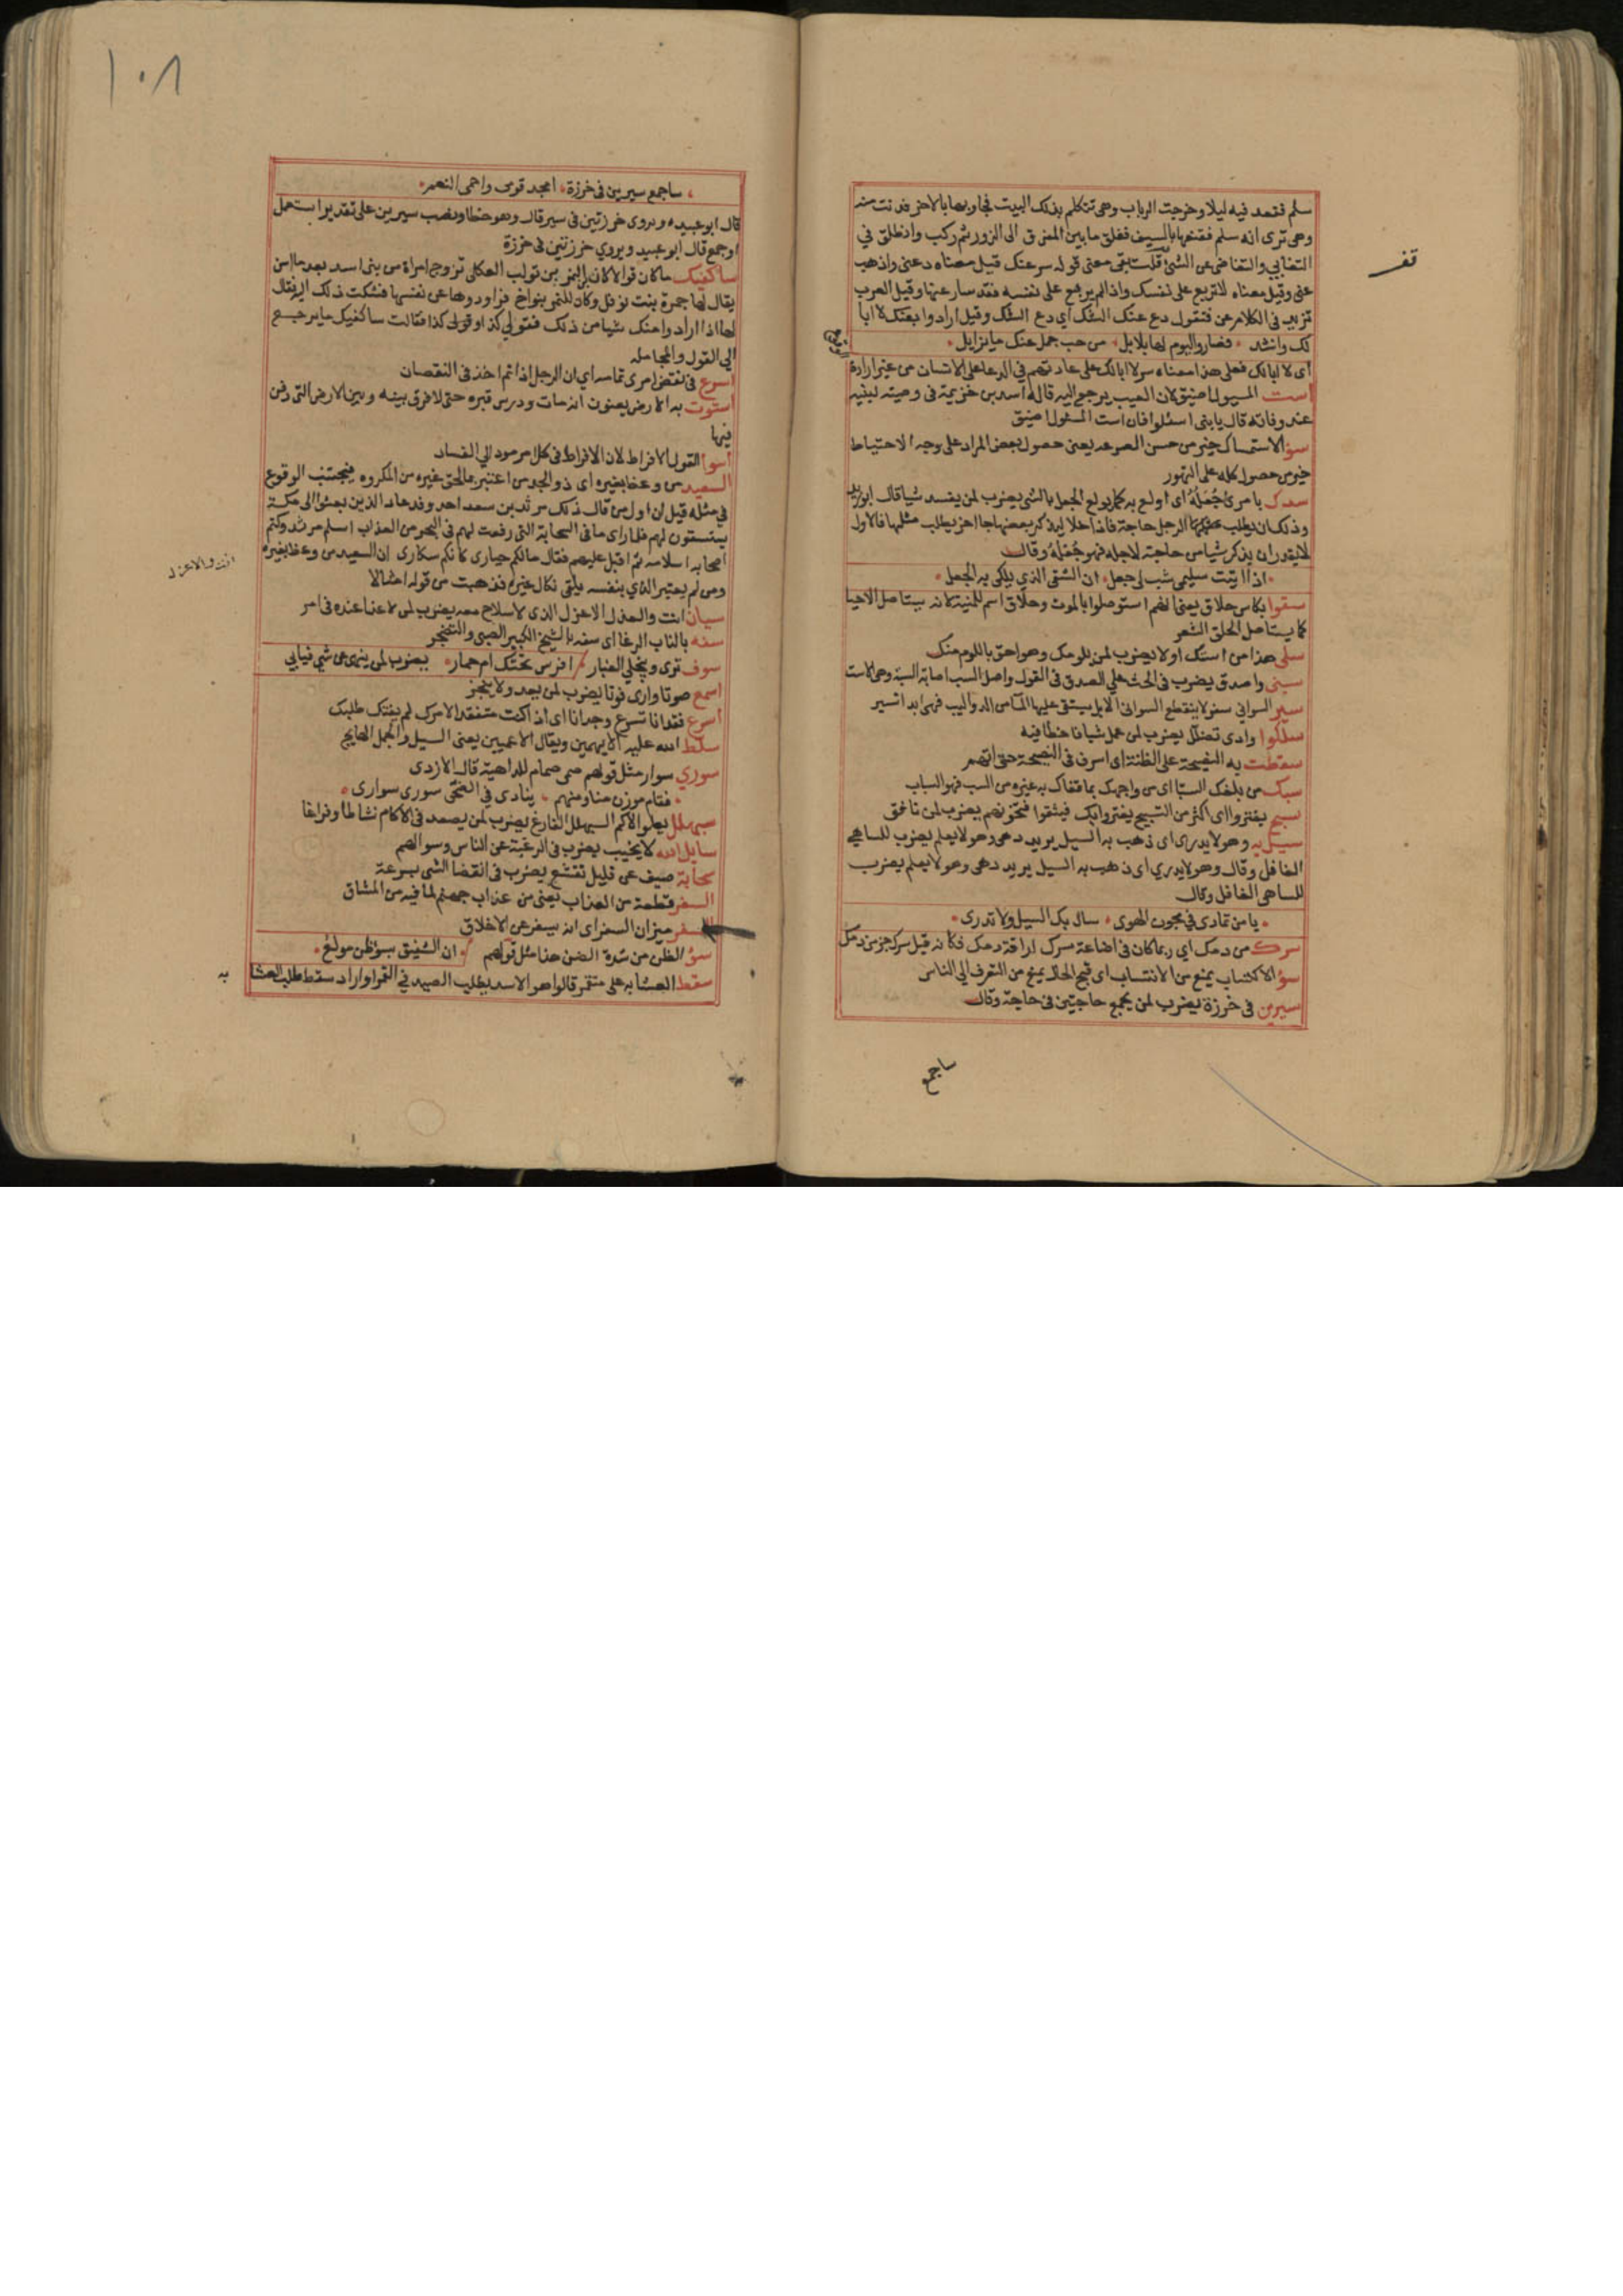 سلم فقعد فيه ليلا وخرجت الرباب وهى تتكلم بذلك البيت فجاوبها بالاخر فدنت منه
وهى ترى انه سلم فقنعها بالسيف ففلق ما بين المفرق الى الزور ثم ركب وانطلق في
التغابي والتغاضى عن الشئ قلت بقى معنى قوله سر عنك قيل معناه دعنى واذهب
عنى وقيل معناه لا تربع على نفسك واذا لم يربع على نفسه فقد سار عنها وقيل العرب
تزيد فى الكلام عن فتقول دع عنك الشك اي دع الشك وقيل ارادوا بعنك لا ابا
لك وانشد فصار واليوم لها بلابل من حب جمل عنك ما يزايل
اى لا ابا لك فعلى هذا معناه سر لا ابا لك على عادتهم في الدعا على الانسان من غير ارادة
است المسيول اضيق لان العيب يرجع اليه قاله اسد بن خزيمة فى وصيته لبنيه
عند وفاته قال يا بنى اسئلوا فان است المسئول اضيق
سؤ الاستمساك خير من حسن الصرعه يعنى حصول بعض المراد على وجه الاحتياط
خير من حصول كله على التهور
سدك بامرئ جُعَلُهُ اى اولع به كما يولع الجعل بالشى يضرب لمن يفسد شيا قال ابو زيد
وذلك ان يطلب الرجل حاجة فاذا خلا ليذكر بعضها جا اخر يطلب مثلها فالاول
لا يقدر ان يذكر شيا من حاجته لاجله فهو جُعَلُهُ وقال
اذا اتيت سليمى شب لى جعل ان الشقى الذي يلكى به الجعل
سقوا بكاس حلاق يعنى انهم استوصلوا بالموت وحلاق اسم للمنية لانه يستاصل الاحيا
كما يستاصل الحلق الشعر
سلى هذا من استك اولا يضرب لمن يلومك وهو احق باللوم منك
سبنى واصدق يضرب فى الحث على الصدق فى القول واصل السب اصابة السبة وهى الاست
سير السواني سفر لا ينقطع السوانى الابل يستقى عليها الما من الدواليب فهى ابدا تسير
سلكوا وادى تضلل يضرب لمن عمل شيا فاخطا فيه
سقطت به النصيحة على الظنة اى اسرف فى النصيحة حتى اتهم
سبك من بلغك السب اى من واجهك بما قفاك به غيره من السب فهو الساب
سبح يغتروا اى اكثر من التسبيح يغتروا بك فيثقوا فتخونهم يضرب لمن نافق
سيل به وهو لا يدرى اى ذهب به السيل يريد دهى وهو لا يعلم يضرب للساهى
الغافل وقال وهو لا يدري اى ذهب به السيل يريد دهى وهو لا يعلم يضرب
للساهى الغافل وقال
يا من تمادى فى مجون الهوى سال بك السيل ولا تدرى
سرك من دمك اي ربما كان فى اضاعة سرك اراقة دمك فكانه قيل سرك جز من دمك
سؤ الاكتساب يمنع من الانتساب اى قبح الحال يمنع من التعرف الي الناس
سيرين فى خرزة يضرب لمن يجمع حاجتين فى حاجة وقال
ساجمع
١٠٨
ساجمع سيرين فى خرزة امجد قومى واحمى النعم
قال ابو عبيده ويروى خرزتين فى سير قال وهو خطا ونصب سيرين على تقدير استعمل
او جمع قال ابو عبيد ويروي خرزتين فى خرزة
ساكفيك ما كان قوالا كان النمر بن تولب العكلى تزوج امراة من بنى اسد بعد ما اسن
يقال لها جمرة بنت نوفل وكان للنمر بنو اخ فراودوها عن نفسها فشكت ذلك اليه فقال
لها اذا ارادوا منك شيا من ذلك فقولي كذا وقولى كذا فقالت ساكفيك ما يرجع
الى القول والمجامله
اسرع فى نقض امرى تمامه اي ان الرجل اذا تم اخذ فى النقصان
استوت به الارض يعنون انه مات ودرس قبره حتى لا فرق بينه وبين الارض التى دفن
فيها
اسوأ القول الافراط لان الافراط فى كل امر مود الي الفساد
السعيد من وعظ بغيره اى ذو الجد من اعتبر بما لحق غيره من المكروه فيجتنب الوقوع
في مثله قيل ان اول من قال ذلك مرثد بن سعد احد وفد عاد الذين بعثوا الى مكة
يستسقون لهم فلما راى ما فى السحابة التى رفعت لهم فى البحر من العذاب اسلم مرثد وكتم
اصحابه اسلامه ثم اقبل عليهم فقال مالكم حيارى كانكم سكارى ان السعيد من وعظ بغيره
ومن لم يعتبر الذي بنفسه يلقى نكال غيره فذهبت من قوله امثالا
سيان انت والعزل الاعزل الذى لا سلاح معه يضرب لمن لا غنا عنده فى امر
انت والاعزل
سفه بالناب الرغا اى سفه بالشيخ الكبير الصبى والتضجر
سوف ترى وينجلي الغبار افرس تحتك ام حمار يضرب لمن ينهى عن شي فيابى
اسمع صوتا وارى فوتا يضرب لمن يعد ولا ينجز
اسرع فقدانا تسرع وجدانا اى اذا كنت متفقدا لامرك لم يفتك طلبك
سلط الله عليه الايهمين ويقال الاعميين يعنى السيل والجمل الهايج
سوري سوار مثل قولهم صمى صمام للداهية قال الازدى
فقام موزن منا ومنهم ينادى في الضحى سورى سوارى
سبهلل يعلو الاكم السبهلل الفارغ يضرب لمن يصعد فى الاكام نشاطا وفراغا
سايل الله لا يخيب يضرب فى الرغبة عن الناس وسوالهم
سحابة صيف عن قليل تقشع يضرب فى انقضا الشى بسرعة
السفر قطعة من العذاب يعنى من عذاب جهنم لما فيه من المشاق
السفر ميزان السفر اى انه يسفر عن الاخلاق
سؤ الظن من شدة الضن هذا مثل قولهم ان الشفيق بسوء ظن مولع
سقط العشا به على متقمر قالوا هو الاسد يطلب الصيد في القمرا واراد سقط طلب العشا
به